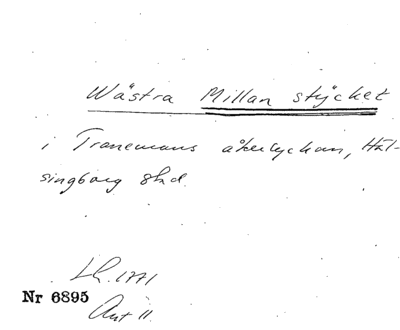 Wästra Millan stÿcket
i Tranemans åkerlyckan, Häl-
singborg stad.
LR. 1771
Nr 6895
Ant 11.